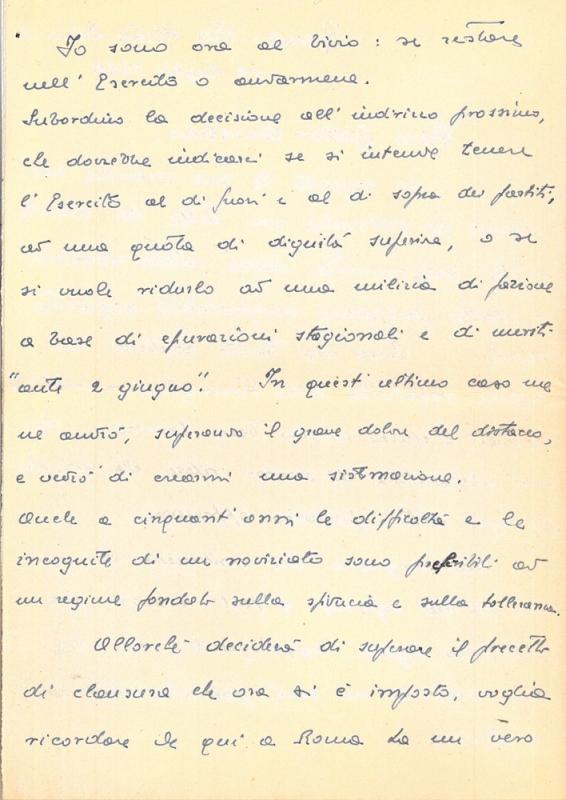 Io sono ora al bivio: se restare
nell'Esercito o andarmene.
Subordino la decisione all'indirizzo prossimo,
che dovrebbe indicarci se si intende tenere
l'Esercito al di fuori e al di sopra dei partiti,
ad una quota di dignità superiore, o se
si vuole ridurlo ad una milizia di fazione
a base di epurazioni stagionali e di meriti
"ante 2 giugno". In quest'ultimo caso me
ne andrò, superando il grave dolore del distacco,
e vedrò di crearmi una sistemazione.
Anche a cinquant'anni le difficoltà e le
incognite di un noviziato sono preferibili ad
un regime fondato sulla sfiducia e sulla tolleranza.
Allorché deciderà di superare il precetto
di clausura che ora si è imposto, voglia
ricordare che qui a Roma ha un vero